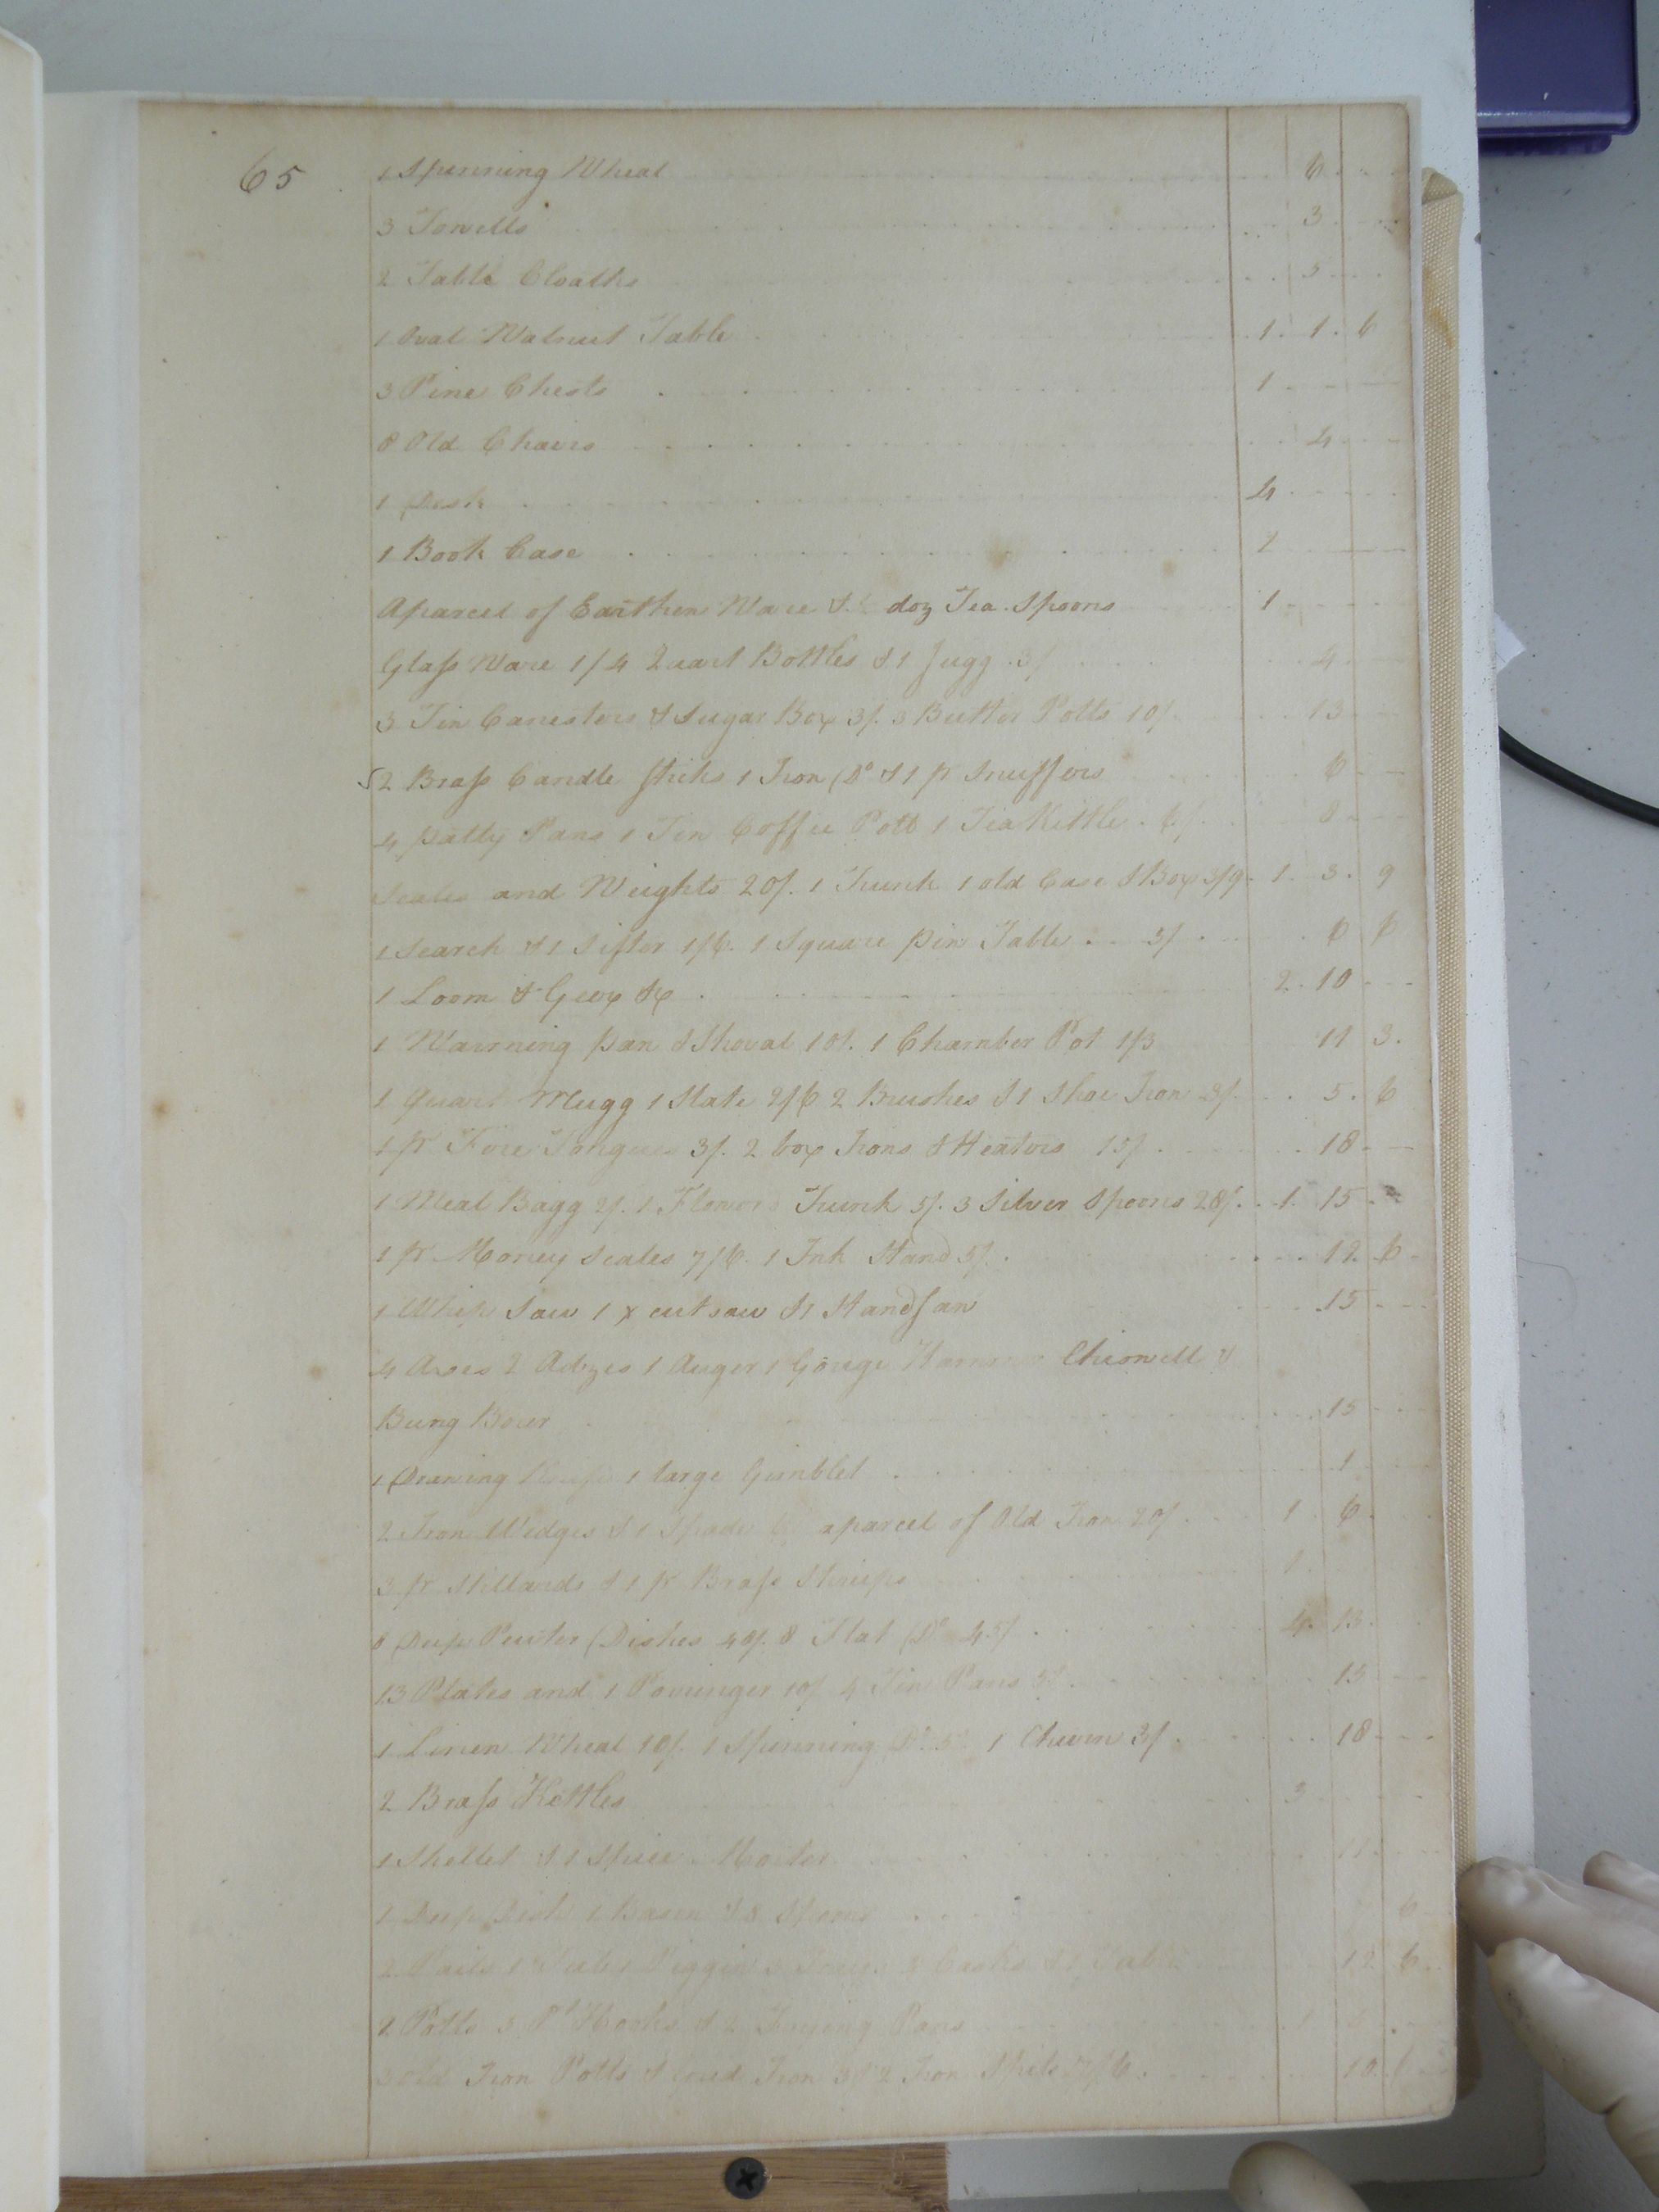 65
1 Spinning Wheal 6
3 Towells 3
2 Table Cloaths 5
1 Oval Walnut Table 1. 1. 6
3 Pine Chests 1
8 Old Chairs 4
1 Desk 4
1 Book Case 2
Aparcel of Earthen Ware & doz Tea Spoons 1
Glass Ware 1/ 4 Quart Bottles & 1 Jugg 3/ 4
3 Tin Canesters & Sugar Box 3/. 3 Butter Potts 10/ 13
2 Brass Candle sticks 1 Iron Do & 1 pr Snuffers 6
4 patty Pans 1 Tin Coffee Pott 1 Tea Kittle. 6/. 8
Scales and Weights 20/. 1 Trunk 1 old Case & Box 3/9. 1. 3. 9
1 Search & 1 Sifter 1/6. 1 Square pin Table 5/ 6 6
1 Loom & Geer &c 2. 10
1 Warming pan & Shoval 10/. 1 Chamber Pot 1/3 11 3.
1 Quart Mugg 1 Slate 2/6 2 Brushes & 1 Shoe Iron 3/. 5. 6
1 pr Fire Tongues 3/. 2 box Irons & Heators 15/. 18
1 Meal Bagg 2/. 1 Flowered Trunk 5/. 3 Silver Spoons 28/. 1. 15
1 pr Money Scales 7/6. 1 Ink Stand 5/. 12. 6
1 Whip Saw 1 x cut saw & 1 Handsaw 15
4 Axes 2 Adzes 1 Auger 1 Gouge Hammer Chisnell &
Bung Borer 15
1 Drawing Knife 1 large Gimblet 1
2 Iron Wedges & 1 Spade 6/ aparcel of Old Iron 20/. 1 6
3 pr Stillards & 1 pr Brass Stirups 1
8 Deep Peuter Dishes 48/. 8 Flat Do 45/ 4. 13.
13 Plates and 1 Porringer 10/ 4 Tin Pans 5/. 15
1 Linen Wheal 10/. 1 Spinning Do 5/. 1 Churn 3/. 18
2 Brass Kettles 3
1 Skellet & 1 Spice Morter 11
1 Deep Dish 1 Bason & 8 Spoons 6
2 Pails 1 Piggin 3 Trays Casks & 1 12 6
2 Potts 3 Pt Hooks & 2 Frying Pans 1
3 old Iron Potts & Grid Iron 3/ 2 Iron Spits 7/6. 10. 6